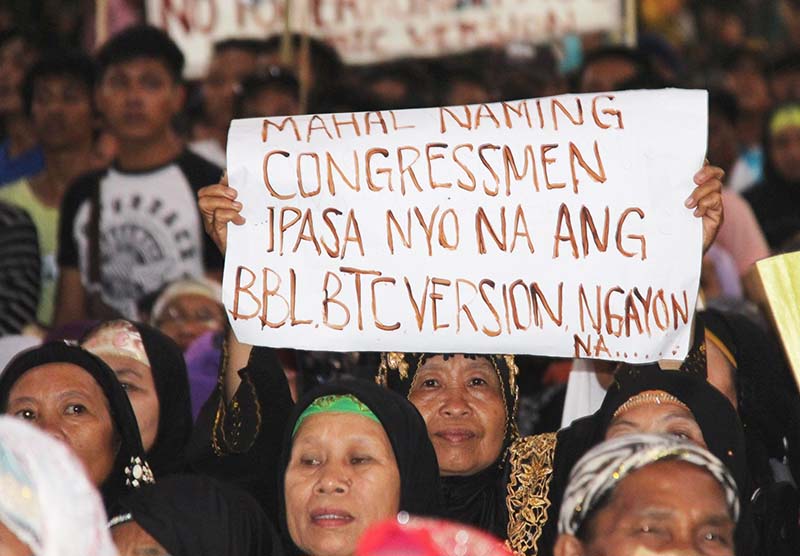 NO
VERSION
MAHAL NAMING
CONGRESSMEN
IPASA NYO NA ANG
BBL. BTC VERSION. NGAYON
NA.....